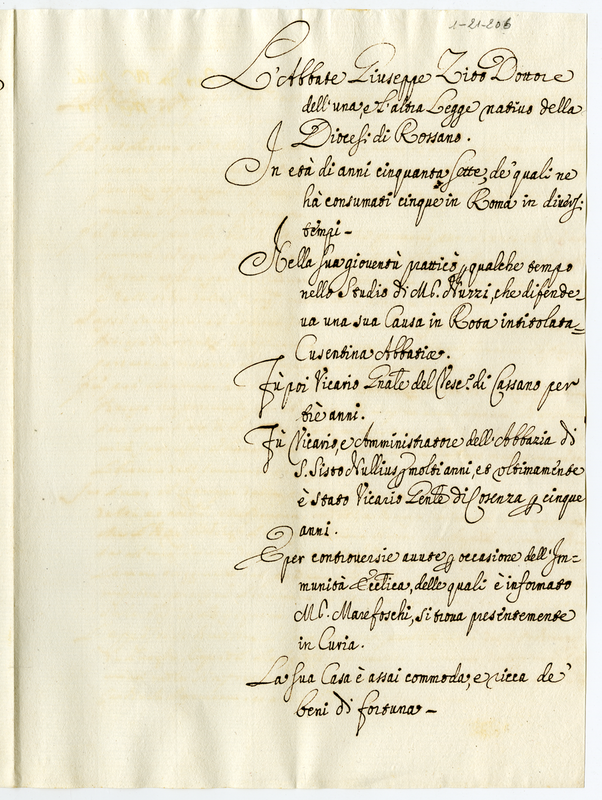 1-21-206
L'Abbate Giuseppe Zito Dottore
dell'una, e l'altra Legge nativo della
Diocesi di Rossano.
In età di anni cinquanta sette, de' quali ne
hà consumati cinque in Roma in diversi
tempi -
Nella sua gioventù patticò p qualche tempo
nello Studio di M.G. Nuzzi, che difende-
ua una sua Causa in Rota intitolata=
Cusentina Abbatiæ.
Fù poi Vicario Gnâle del Vesc.º di Cassano per
trè anni.
Fù Vicario, e Amministratore dell'Abbazia di
S. Sisto Nullius p molti anni, et vltimamẽte
è stato Vicario Gen̄le di Cosenza p cinque
anni.
E per controversie auute p occasione dell'Im=
munità Ecctica, delle quali è informato
M.G. Marefoschi, si troua presẽtemente
in Curia.
La sua Casa è assai commoda, e ricca de'
beni di fortuna -